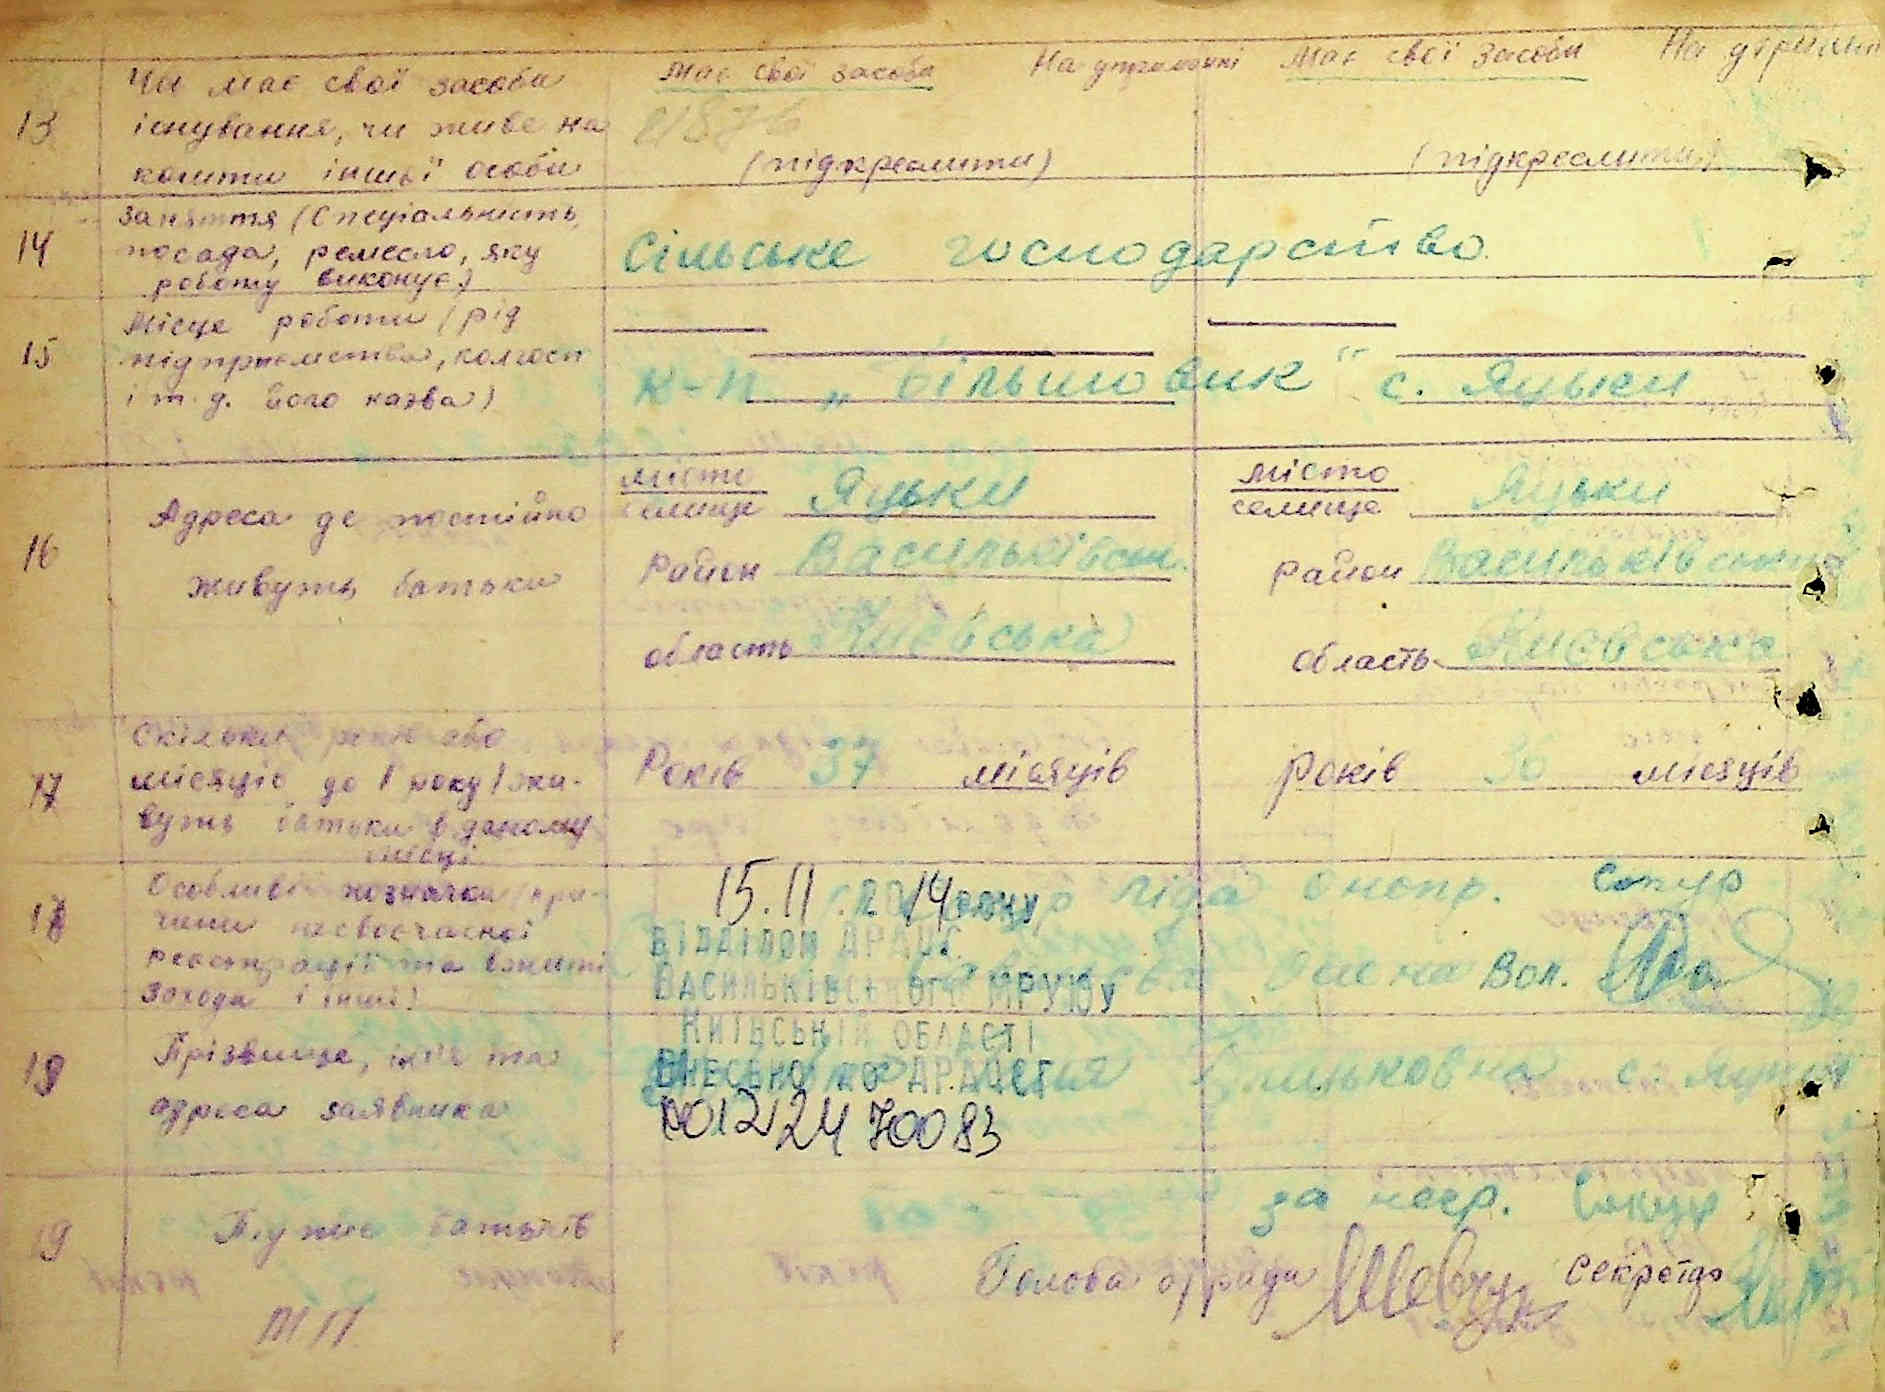 13 Чи має свої засоби Має свої засоби На утриманні Має свої засоби На утриман
існування, чи живе на
кошти іншої особи (підкреслити) (підкреслити)
14 Заняття (Спеціальність,
посада, ремесло, яку Сільське господарство
роботу виконує)
15 Місце роботи (рід
підприємства, колгосп
і т.д. його назва) к-п „Більшовик" с. Яцьки
16 Адреса де постійно
живуть батьки
місто
селище Яцьки
Район Васильківськ.
область Києвська
місто
селище Яцьки
район Васильківський
область Києвська
17 Скільки років або
місяців до 1 року) жи-
вуть батьки в даному
місці
Років 37 місяців Років 30 місяців
18 Особливі позначки (при-
чини несвоєчасної
реєстрації та вжиті
заходи і інші)
15.11.2014 року Ліда Сокур
ВІДДІЛОМ ДРАЦС
ВАСИЛЬКІВСЬКОГО МРУЮ У Вол.
КИЇВСЬКІЙ ОБЛАСТІ
19 Прізвище, ім'я та
адреса заявника
ВНЕСЕНО ДО ДРАЦСГ с. Яцьки
00122470083
19 Підпис батьків за негр. Сокур
Голова с/ради Секретар
МП